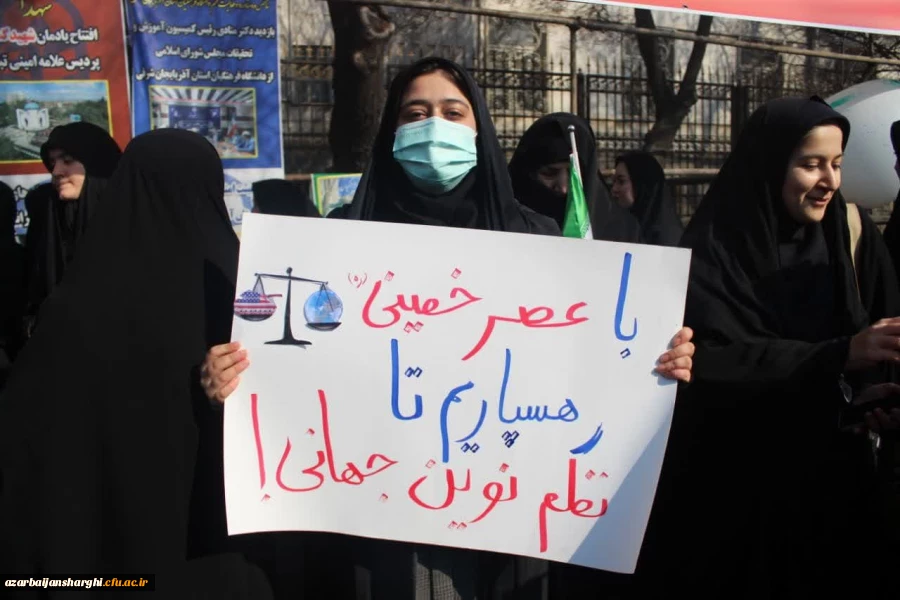 شهدا
افتتاح یادمان شهید گ
پردیس علامه امینی تب
بازدید دکتر منادی رئیس کمیسیون آموزش و
تحقیقات مجلس شورای اسلامی
از دانشگاه فرهنگیان استان آذربایجان شرقی
با عصر خمینی (ره)
رهسپاریم تا
نظم نوین جهانی!
azarbaijansharghi.cfu.ac.ir